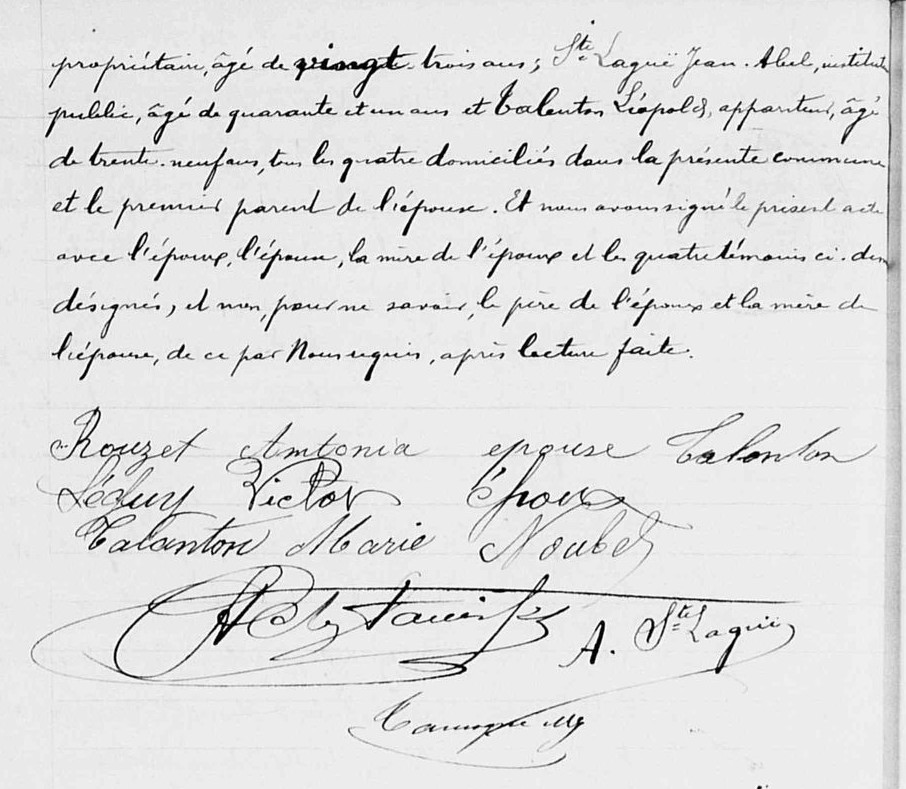 propriétaire, âgé de vingt-trois ans; Ste Laguë Jean-Abel, institut
public, âgé de quarante et un ans et Talenton Léopold, appariteur, âgé
de trente-neuf ans, tous les quatre domiciliés dans la présente commune
et le premier parent de l'épouse. Et nous avons signé le présent acte
avec l'époux, l'épouse, la mère de l'époux et les quatre témoins ci-des
désignés, et non, pour ne savoir, le père de l'époux et la mère de
l'épouse, de ce par Nous requis, après lecture faite.
Rouzet Antonia epouse Talenton
Léguy Victor Époux
Talanton Marie
A. Ste Laguë